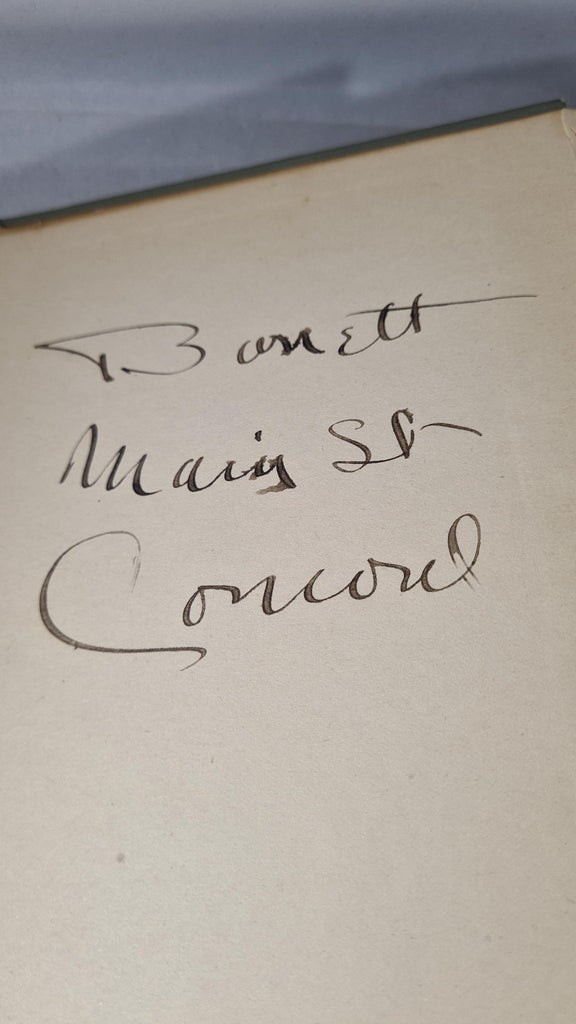 Barrett
Main St
Concord